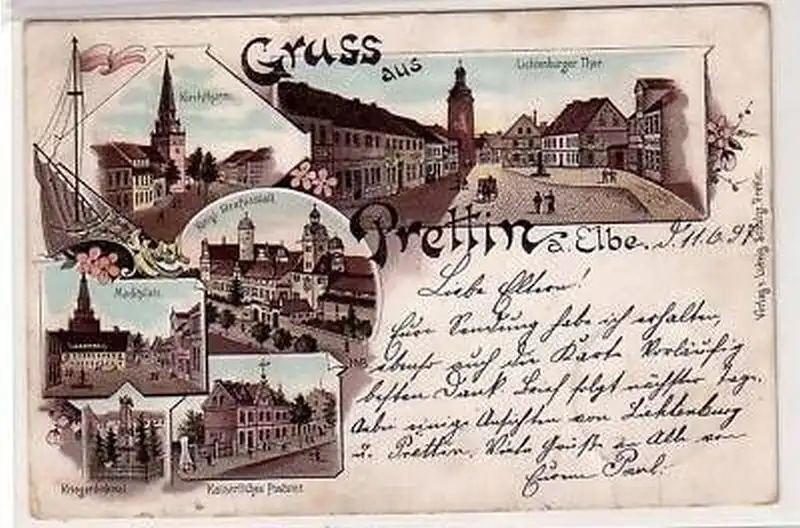 Gruss
aus
Lichtenburger Thor
Kirchthurm
Prettin a. Elbe.
d. 11.6.97
Königl. Strafanstalt
Marktplatz
Kriegerdenkmal
Kaiserliches Postamt
Liebe Eltern!
Eure Sendung habe ich erhalten,
ebenso auch die Karte Vorläufig
besten Dank Brief folgt nächster Tage.
Anbei einige Ansichten von Lichtenburg
u. Prettin. Viele Grüße an Alle von
Eurem Paul.
Verlag v. Ludwig Prettin.